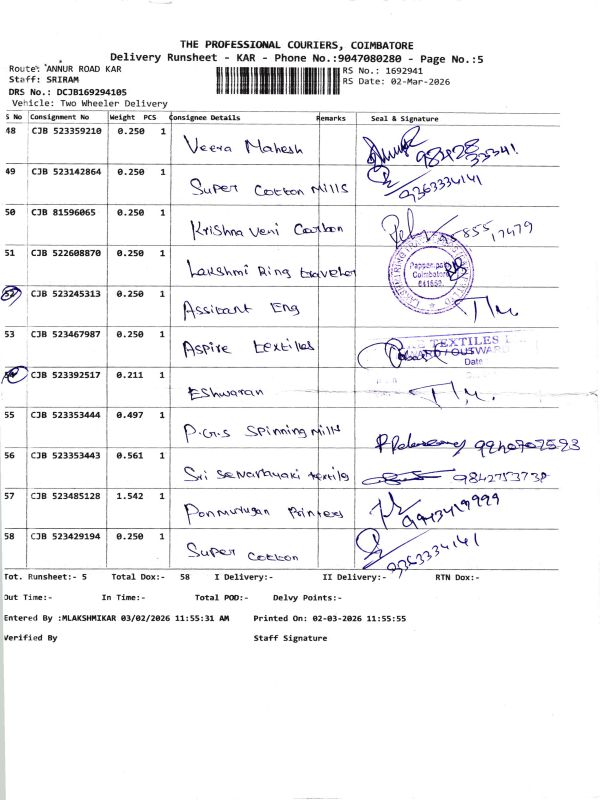 THE PROFESSIONAL COURIERS, COIMBATORE
Delivery Runsheet - KAR - Phone No.:9047080280 - Page No.:5
Route: ANNUR ROAD KAR
RS No.: 1692941
Staff: SRIRAM
RS Date: 02-Mar-2026
DRS No.: DCJB169294105
Vehicle: Two Wheeler Delivery
S No Consignment No Weight PCS Consignee Details Remarks Seal & Signature
48 CJB 523359210 0.250 1 Veera Mahesh
49 CJB 523142864 0.250 1 Super Cotton Mills 9363334141
50 CJB 81596065 0.250 1 Krishna Veni Carbon
51 CJB 522608870 0.250 1 Lakshmi Ring traveler
Coimbatore
52 CJB 523245313 0.250 1 Assitant Eng
53 CJB 523467987 0.250 1 Aspire textiles
TEXTILES
WARD / OUTWARD
Date
54 CJB 523392517 0.211 1 Eshwaran
55 CJB 523353444 0.497 1 P.G.S Spinning Mills
56 CJB 523353443 0.561 1 Sri textile 9842753738
57 CJB 523485128 1.542 1 Ponmurugan Printers
58 CJB 523429194 0.250 1 Super Cotton 9363334141
Tot. Runsheet:- 5 Total Dox:- 58 I Delivery:- II Delivery:- RTN Dox:-
Out Time:- In Time:- Total POD:- Delvy Points:-
Entered By :MLAKSHMIKAR 03/02/2026 11:55:31 AM Printed On: 02-03-2026 11:55:55
Verified By Staff Signature